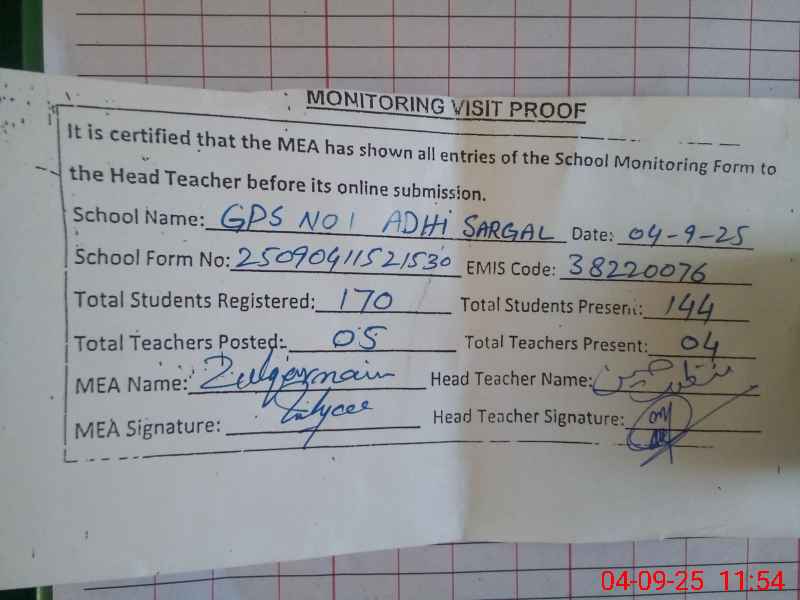 MONITORING VISIT PROOF
It is certified that the MEA has shown all entries of the School Monitoring Form to
the Head Teacher before its online submission.
School Name: GPS NO 1 ADHI SARGAL Date: 04-9-25
School Form No: 25090411521530 EMIS Code: 38220076
Total Students Registered: 170 Total Students Present: 144
Total Teachers Posted: 05 Total Teachers Present: 04
MEA Name: Zulqarnain Head Teacher Name: منظر حسین
MEA Signature: Head Teacher Signature:
04-09-25 11:54